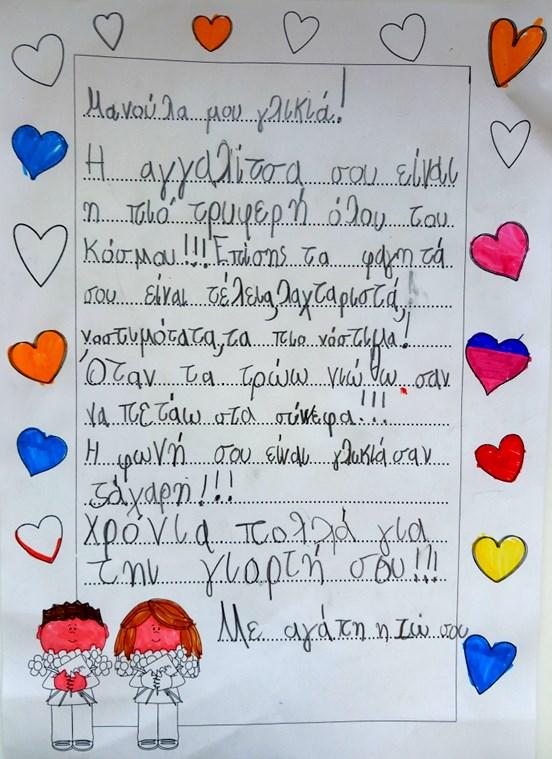 Μανούλα μου γλικιά!
Η αγγαλίτσα σου είναι
η πιό τρυφερή όλου του
Κόσμου!!! Επισης τα φαγητά
σου είναι τέλεια, λαχταριστά,
νοστιμότατα, τα πιο νόστιμα!
Όταν τα τρώω νιώθω σαν
να πετάω στα σύνεφα!!!
Η φωνή σου είναι γλικιά σαν
ζάχαρη!!!
Χρόνια πολλά για
την γιορτή σου!!!
Με αγάπη η σου